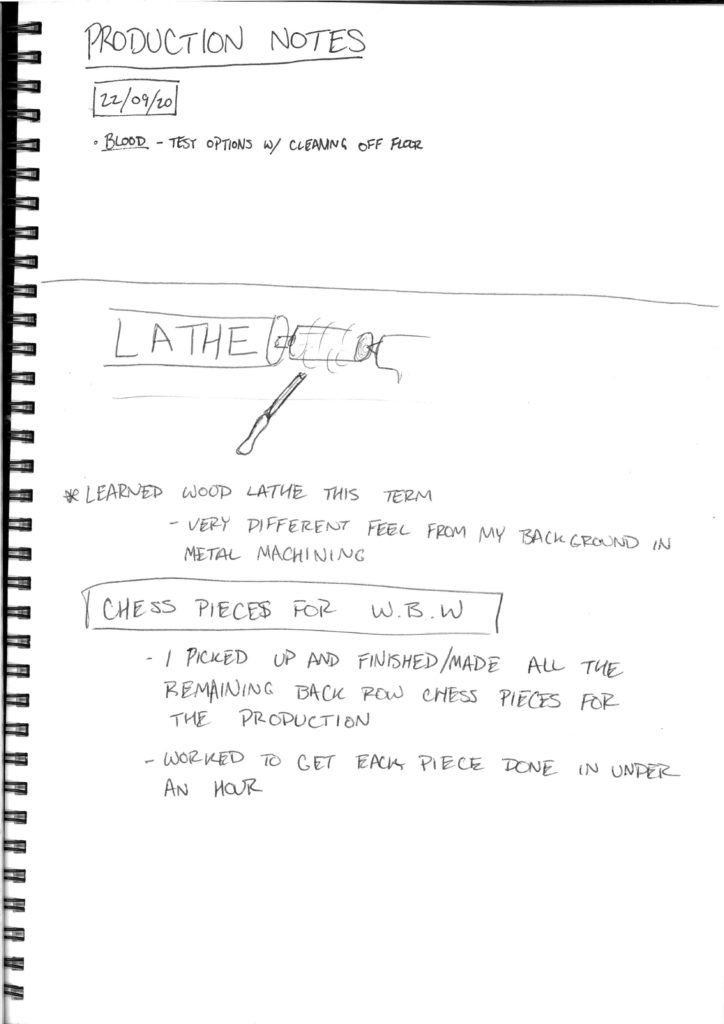 PRODUCTION NOTES
22/09/20
• BLOOD - TEST OPTIONS W/ CLEANING OFF FLOOR
LATHE
* LEARNED WOOD LATHE THIS TERM
- VERY DIFFERENT FEEL FROM MY BACKGROUND IN
METAL MACHINING
CHESS PIECES FOR W.B.W
- I PICKED UP AND FINISHED/MADE ALL THE
REMAINING BACK ROW CHESS PIECES FOR
THE PRODUCTION
- WORKED TO GET EACH PIECE DONE IN UNDER
AN HOUR